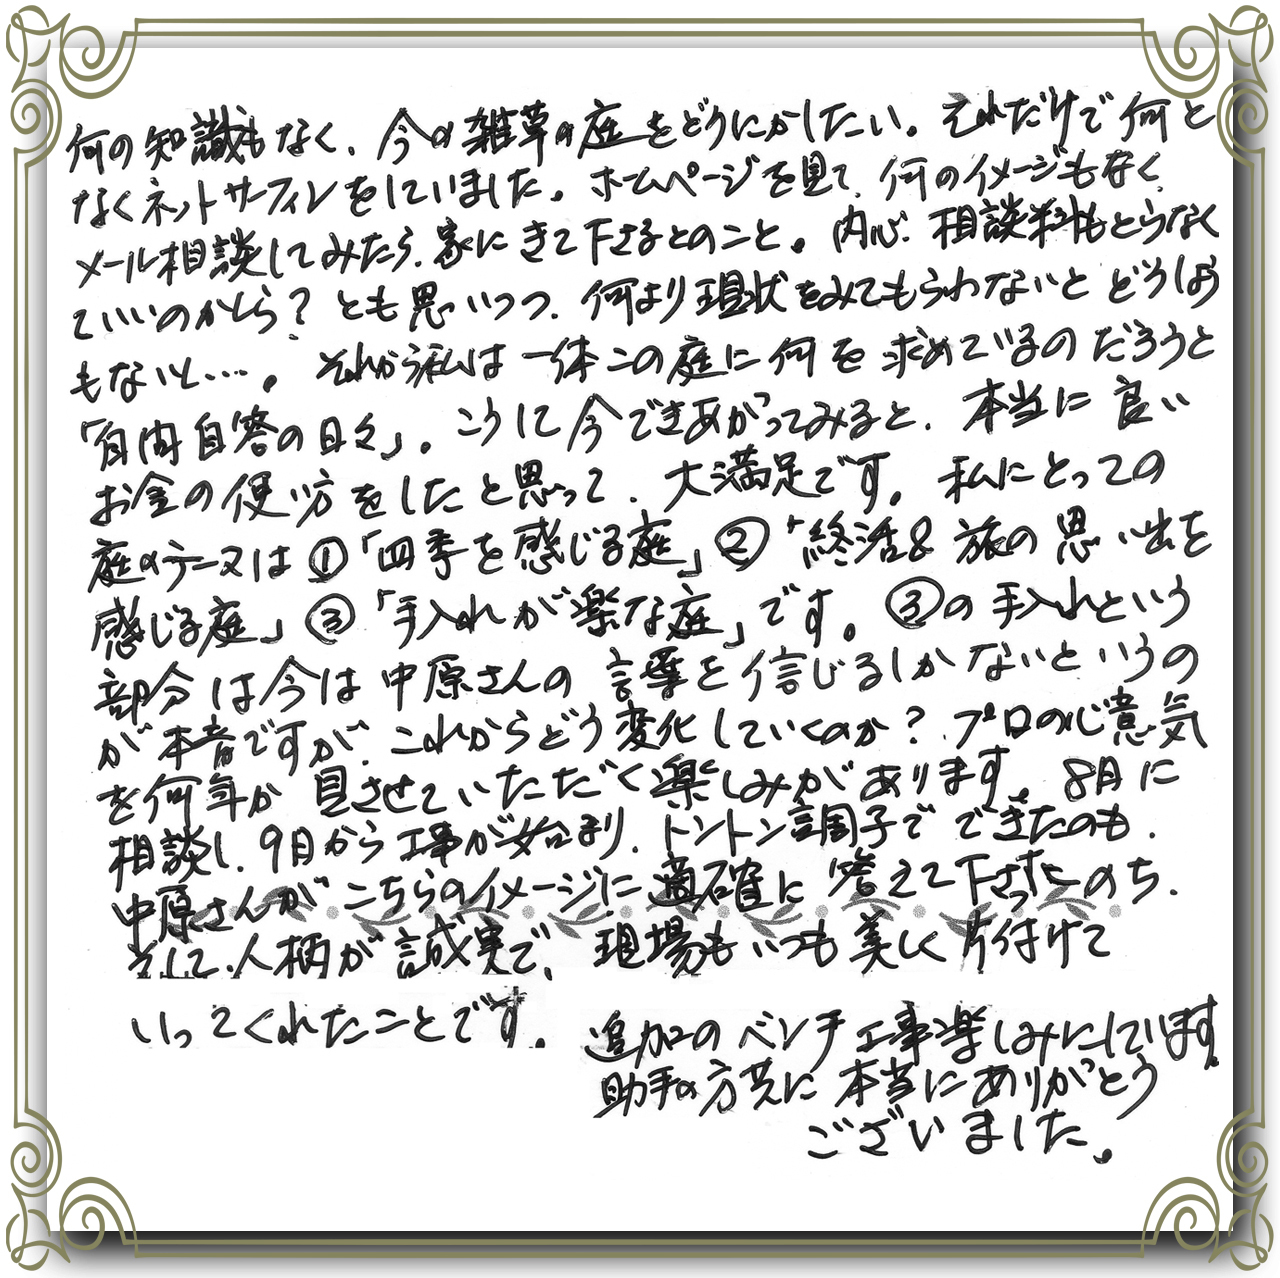 何の知識もなく、今の雑草の庭をどうにかしたい。それだけで何と
なくネットサーフィンをしていました。ホームページを見て、何のイメージもなく、
メール相談してみたら、家にきて下さるとのこと。内心、相談料もとらなく
ていいのかしら?とも思いつつ、何より現状をみてもらわないとどうしよう
もないし…。それから私は一体この庭に何を求めているのだろうと
「自問自答の日々」。こうして今できあがってみると、本当に良い
お金の使い方をしたと思って、大満足です。私にとっての
庭のテーマは①「四季を感じる庭」②「終活&旅の思い出を
感じる庭」③「手入れが楽な庭」です。③の手入れという
部分は今は中原さんの言葉を信じるしかないというの
が本音ですが、これからどう変化していくのか?プロの心意気
を何年か見させていただく楽しみがあります。8月に
相談し、9月から工事が始まり、トントン調子でできたのも、
中原さんがこちらのイメージに適確に答えて下さったのち、
そして、人柄が誠実で、現場もいつも美しく片付けて
いってくれたことです。
追加のベンチ工事楽しみにしています。
助手の方共に本当にありがとう
ございました。